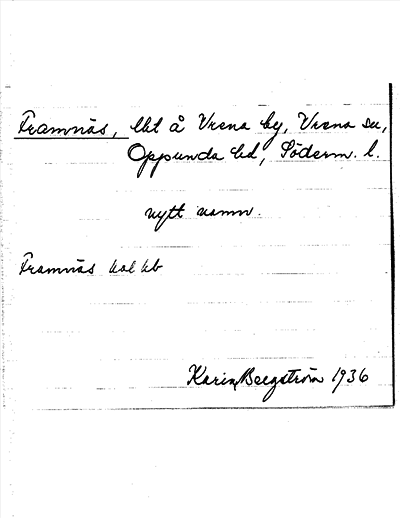 Framnäs, lht å Vrena by, Vrena sn,
Oppunda hd, Söderm. l.
nytt namn.
Framnäs
Karin Bergström 1936